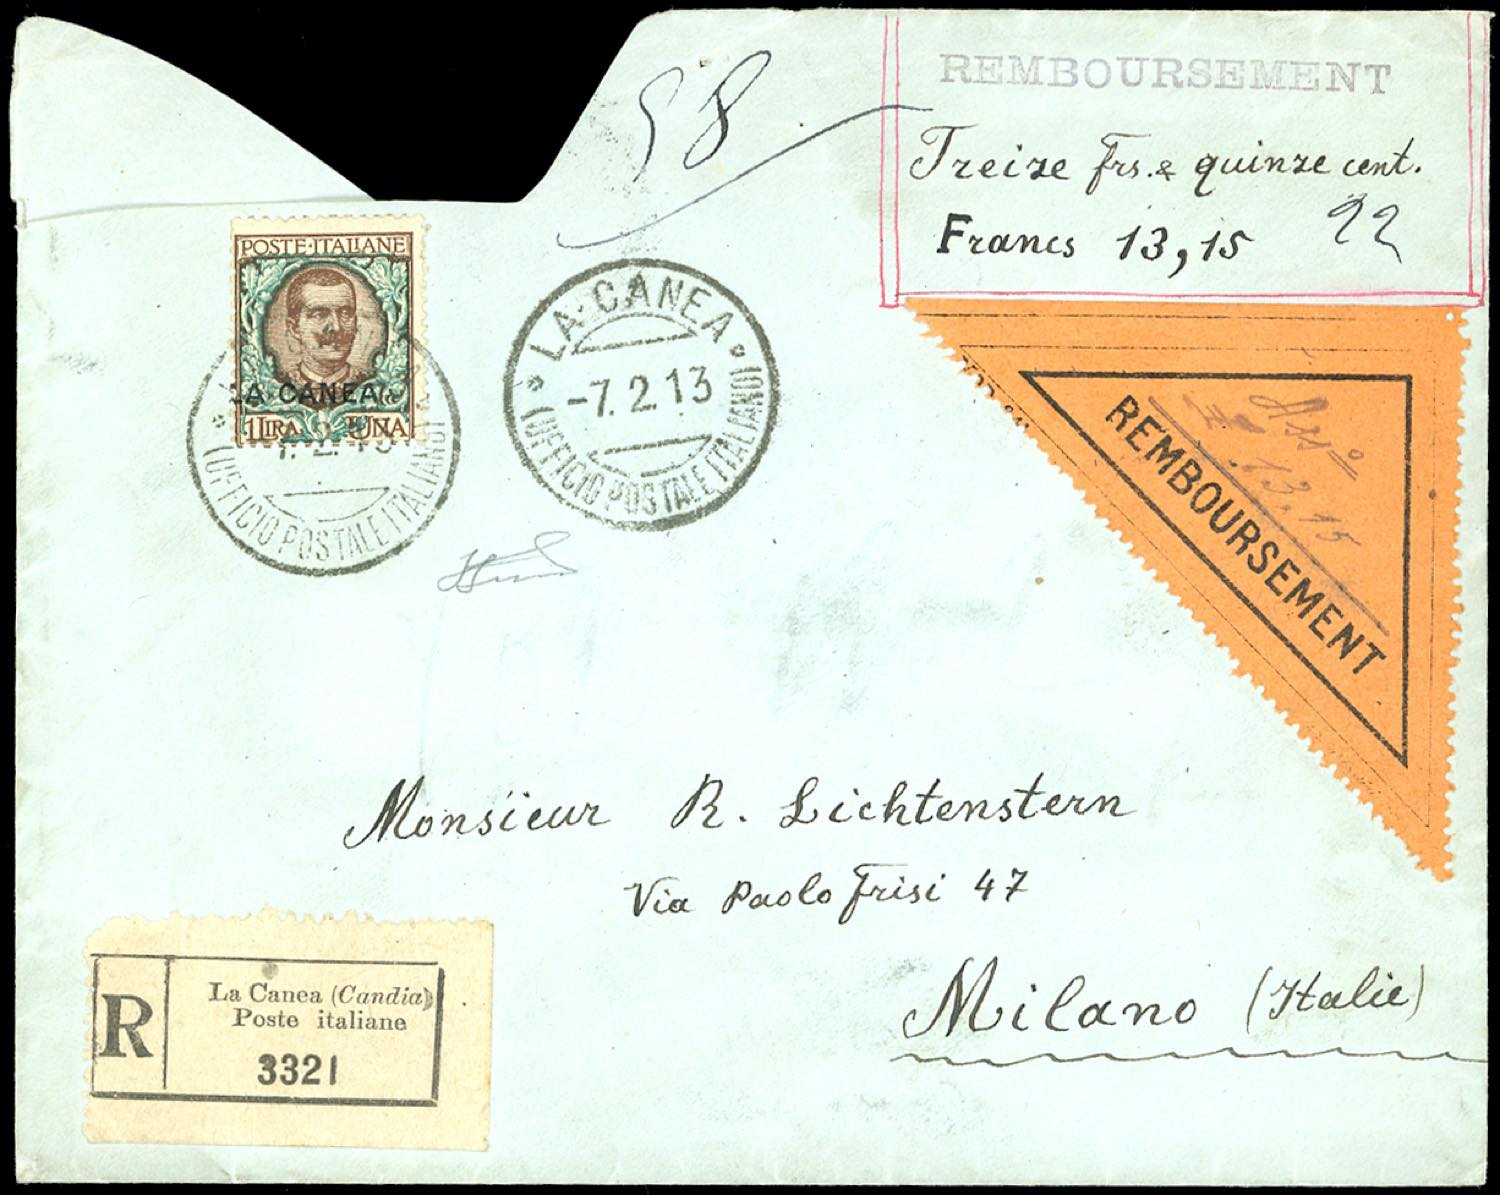 58
REMBOURSEMENT
Treize frs. & quinze cent.
Francs 13,15
22
POSTE·ITALIANE
LA CANEA
1 LIRA UNA
(UFFICIO POSTALE ITALIANO)
LA·CANEA
-7.2.13
(UFFICIO POSTALE ITALIANO)
REMBOURSEMENT
Ass°
13.15
Monsieur R. Lichtenstern
Via Paolo Frisi 47
Milano (Italie)
R
La Canea (Candia)
Poste italiane
3321